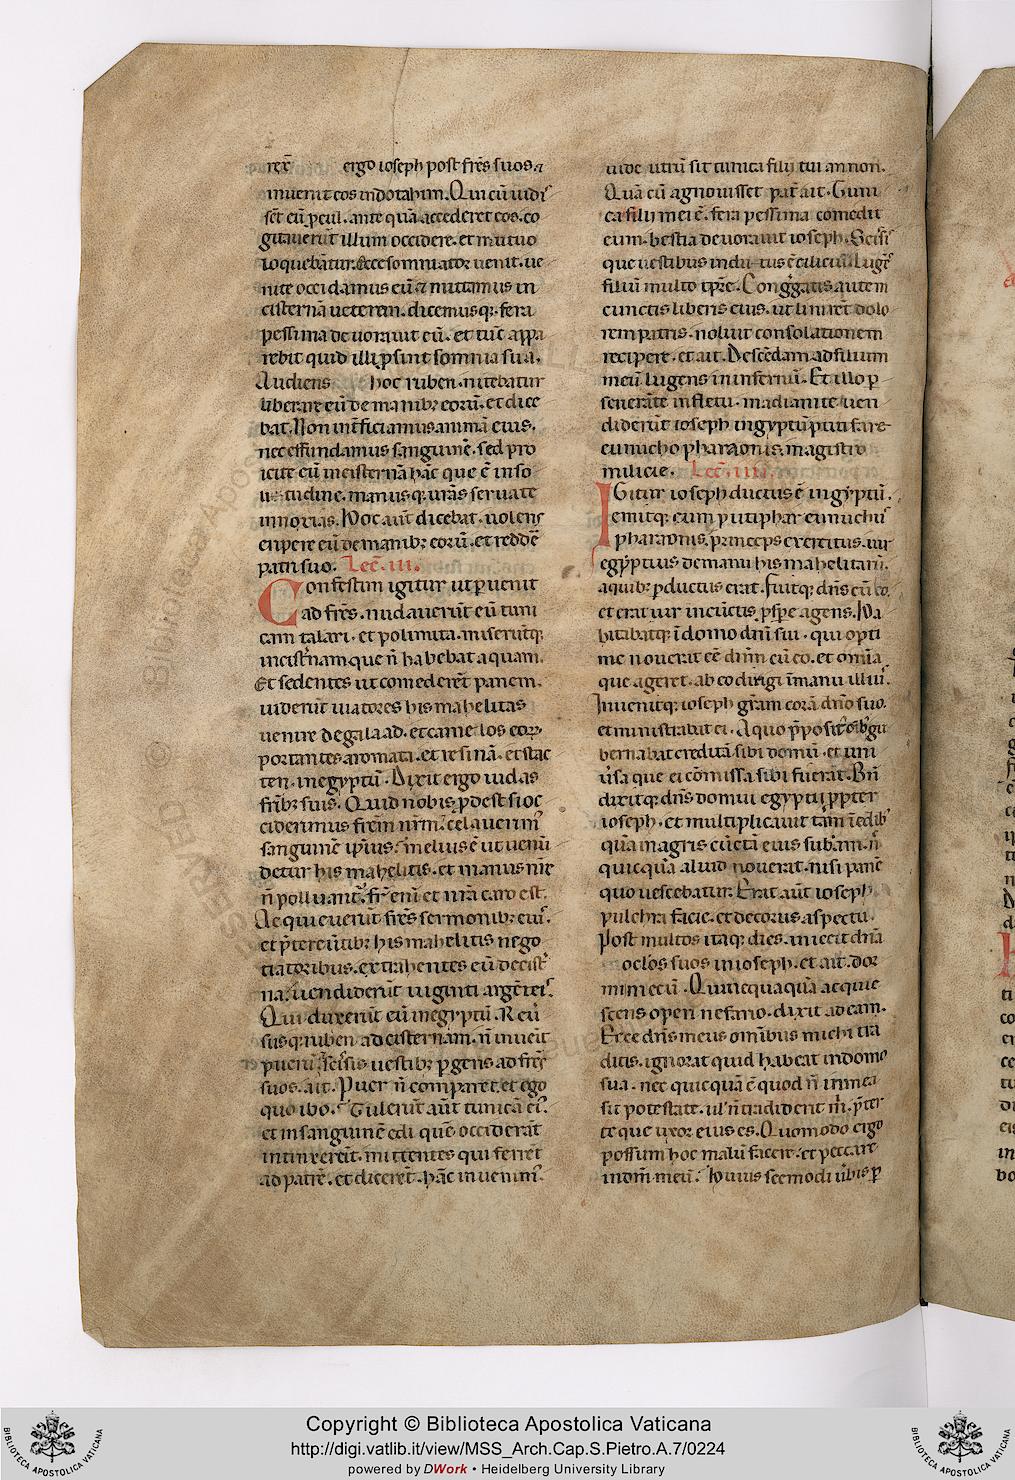 rex̄ ergo ioseph post fr̄es suos. ⁊
inuenit eos indotahim. Qui cū uidi
set eū ꝑcul. ante quā accederet eos. co
gitauerūt illum occidere. et mutuo
loquebātur. Ecce somniator uenit. ue
nite occidamus eū ⁊ mittamus in
cisternā ueterem. dicemusqꝫ. fera
pessima deuorauit eū. et tūc appa
rebit quid illi ꝓsint somnia sua.
Audiens hoc ruben. nitebatur
liberare eū de manibꝫ eorū. et dice
bat. Non int̄ficiamus animā eius.
nec effundamus sanguinē. sed pro
icite eū incisternā hāc que ē inso
litudine. manusqꝫ ur̄as seruate
innoxias. Hoc aūt dicebat. uolens
eripere eū de manibꝫ eorū. et reddē
patri suo. Lec̄. iii.
Confestim igitur ut ꝑuenit
ad fr̄es. nudauerūt eū tuni
cam talari. et polimita. miserūtqꝫ
incist̄nam que n̄ habebat aquam.
Et sedentes ut comederēt panem.
uiderūt uiatores hismahelitas
uenire de galaad. et camelos eoꝝ
portantes aromata. et resinā. et stac
ten. inegyptū. Dixit ergo iudas
fr̄ibꝫ suis. Quid nobis ꝓdest si oc
ciderimus fr̄em nr̄m. celauerim᾽
sanguinē ip̄ius. melius ē ut uenū
detur hismahelitis. et manus nr̄e
n̄ polluant᷑. fr̄ eni᷑ et nr̄a caro est.
Acquieuerūt fr̄es sermonibꝫ eiu᾽.
et p̄tereūtibꝫ hismahelitis nego
tiatoribus. extrahentes eū decist̄
na. uendiderūt uiginti argēteis.
Qui duxerūt eū inegyptū. Reuer
susqꝫ ruben ad cisternam. n̄ inuēit
puerū. Scissis uestibꝫ ꝑgens ad fr̄es
suos. ait. Puer n̄ comparet. et ego
quo ibo. Tulerūt aūt tunicā ei᾽.
et insanguinē edi quē occiderāt
intinxerūt. mittentes qui ferrēt
ad patrē. et dicerēt. hāc inuenim᾽.
uide utrū sit tunica filii tui an non.
Quā cū agnouisset pat̄ ait. Tuni
ca filii mei ē. fera pessima comedit
eum. bestia deuorauit ioseph. Scissis
que uestibus indutus ē cilicium. lugēs
filiū multo tp̄re. Congregatis autem
cunctis liberis eius. ut lenirēt dolo
rem patris. noluit consolationem
recipere. et ait. Descēdam ad filium
meū lugens ininfernū. Et illo ꝑ
seuerāte infletu. madianite uen
diderūt ioseph ingyptū putifare
eunucho pharaonis. magistro
milicie. Lec̄. iiii.
Igitur ioseph ductus ē ingyptū.
emitqꝫ eum putiphar eunuchu᾽
pharaonis. princeps exercitus. uir
egyptius demanu hismahelitarū.
aquibꝫ ꝑductus erat. Fuitqꝫ dn̄s cū eo.
et erat uir incūctis ꝓspe agens. Ha
bitabatqꝫ ī domo dn̄i sui. qui opti
me nouerat eē dn̄m cū eo. et omīa
que ageret. ab eo dirigi īmanu illiu᾽.
Inuenitqꝫ ioseph gr̄am corā dn̄o suo.
et ministrabat ei. Aquo p̄posit᾽ oībꝫ gu
bernabat creditā sibi domū. et uni
uersa que ei cōmissa sibi fuerāt. Bn̄
dixitqꝫ dn̄s domui egyptii ꝓpter
ioseph. et multiplicauit tam īedibꝫ
quā inagris cūctā eius subst̄am. n̄
quicquā aliud nouerat. nisi panē
quo uescebatur. Erat aūt ioseph
pulchra facie. et decorus aspectu.
Post multos itaqꝫ dies. iniecit dn̄a
oclōs suos inioseph. et ait. dor
mi mecū. Qui nequaquā acquie
scens operi nefario. dixit ad eam.
Ecce dn̄s meus omībus michi tra
ditis. ignorat quid habeat indomo
sua. nec quicquā ē quod n̄ inmea
sit potestate. uel n̄ tradiderit m̄. p̄ter
te que uxor eius es. Quomodo ergo
possum hoc malū facere. et peccare
indn̄m meū. Huiuscemodi ūbis ꝑ
Copyright © Biblioteca Apostolica Vaticana
http://digi.vatlib.it/view/MSS_Arch.Cap.S.Pietro.A.7/0224
powered by DWork • Heidelberg University Library
BIBLIOTECA APOSTOLICA VATICANA
BIBLIOTECA APOSTOLICA VATICANA